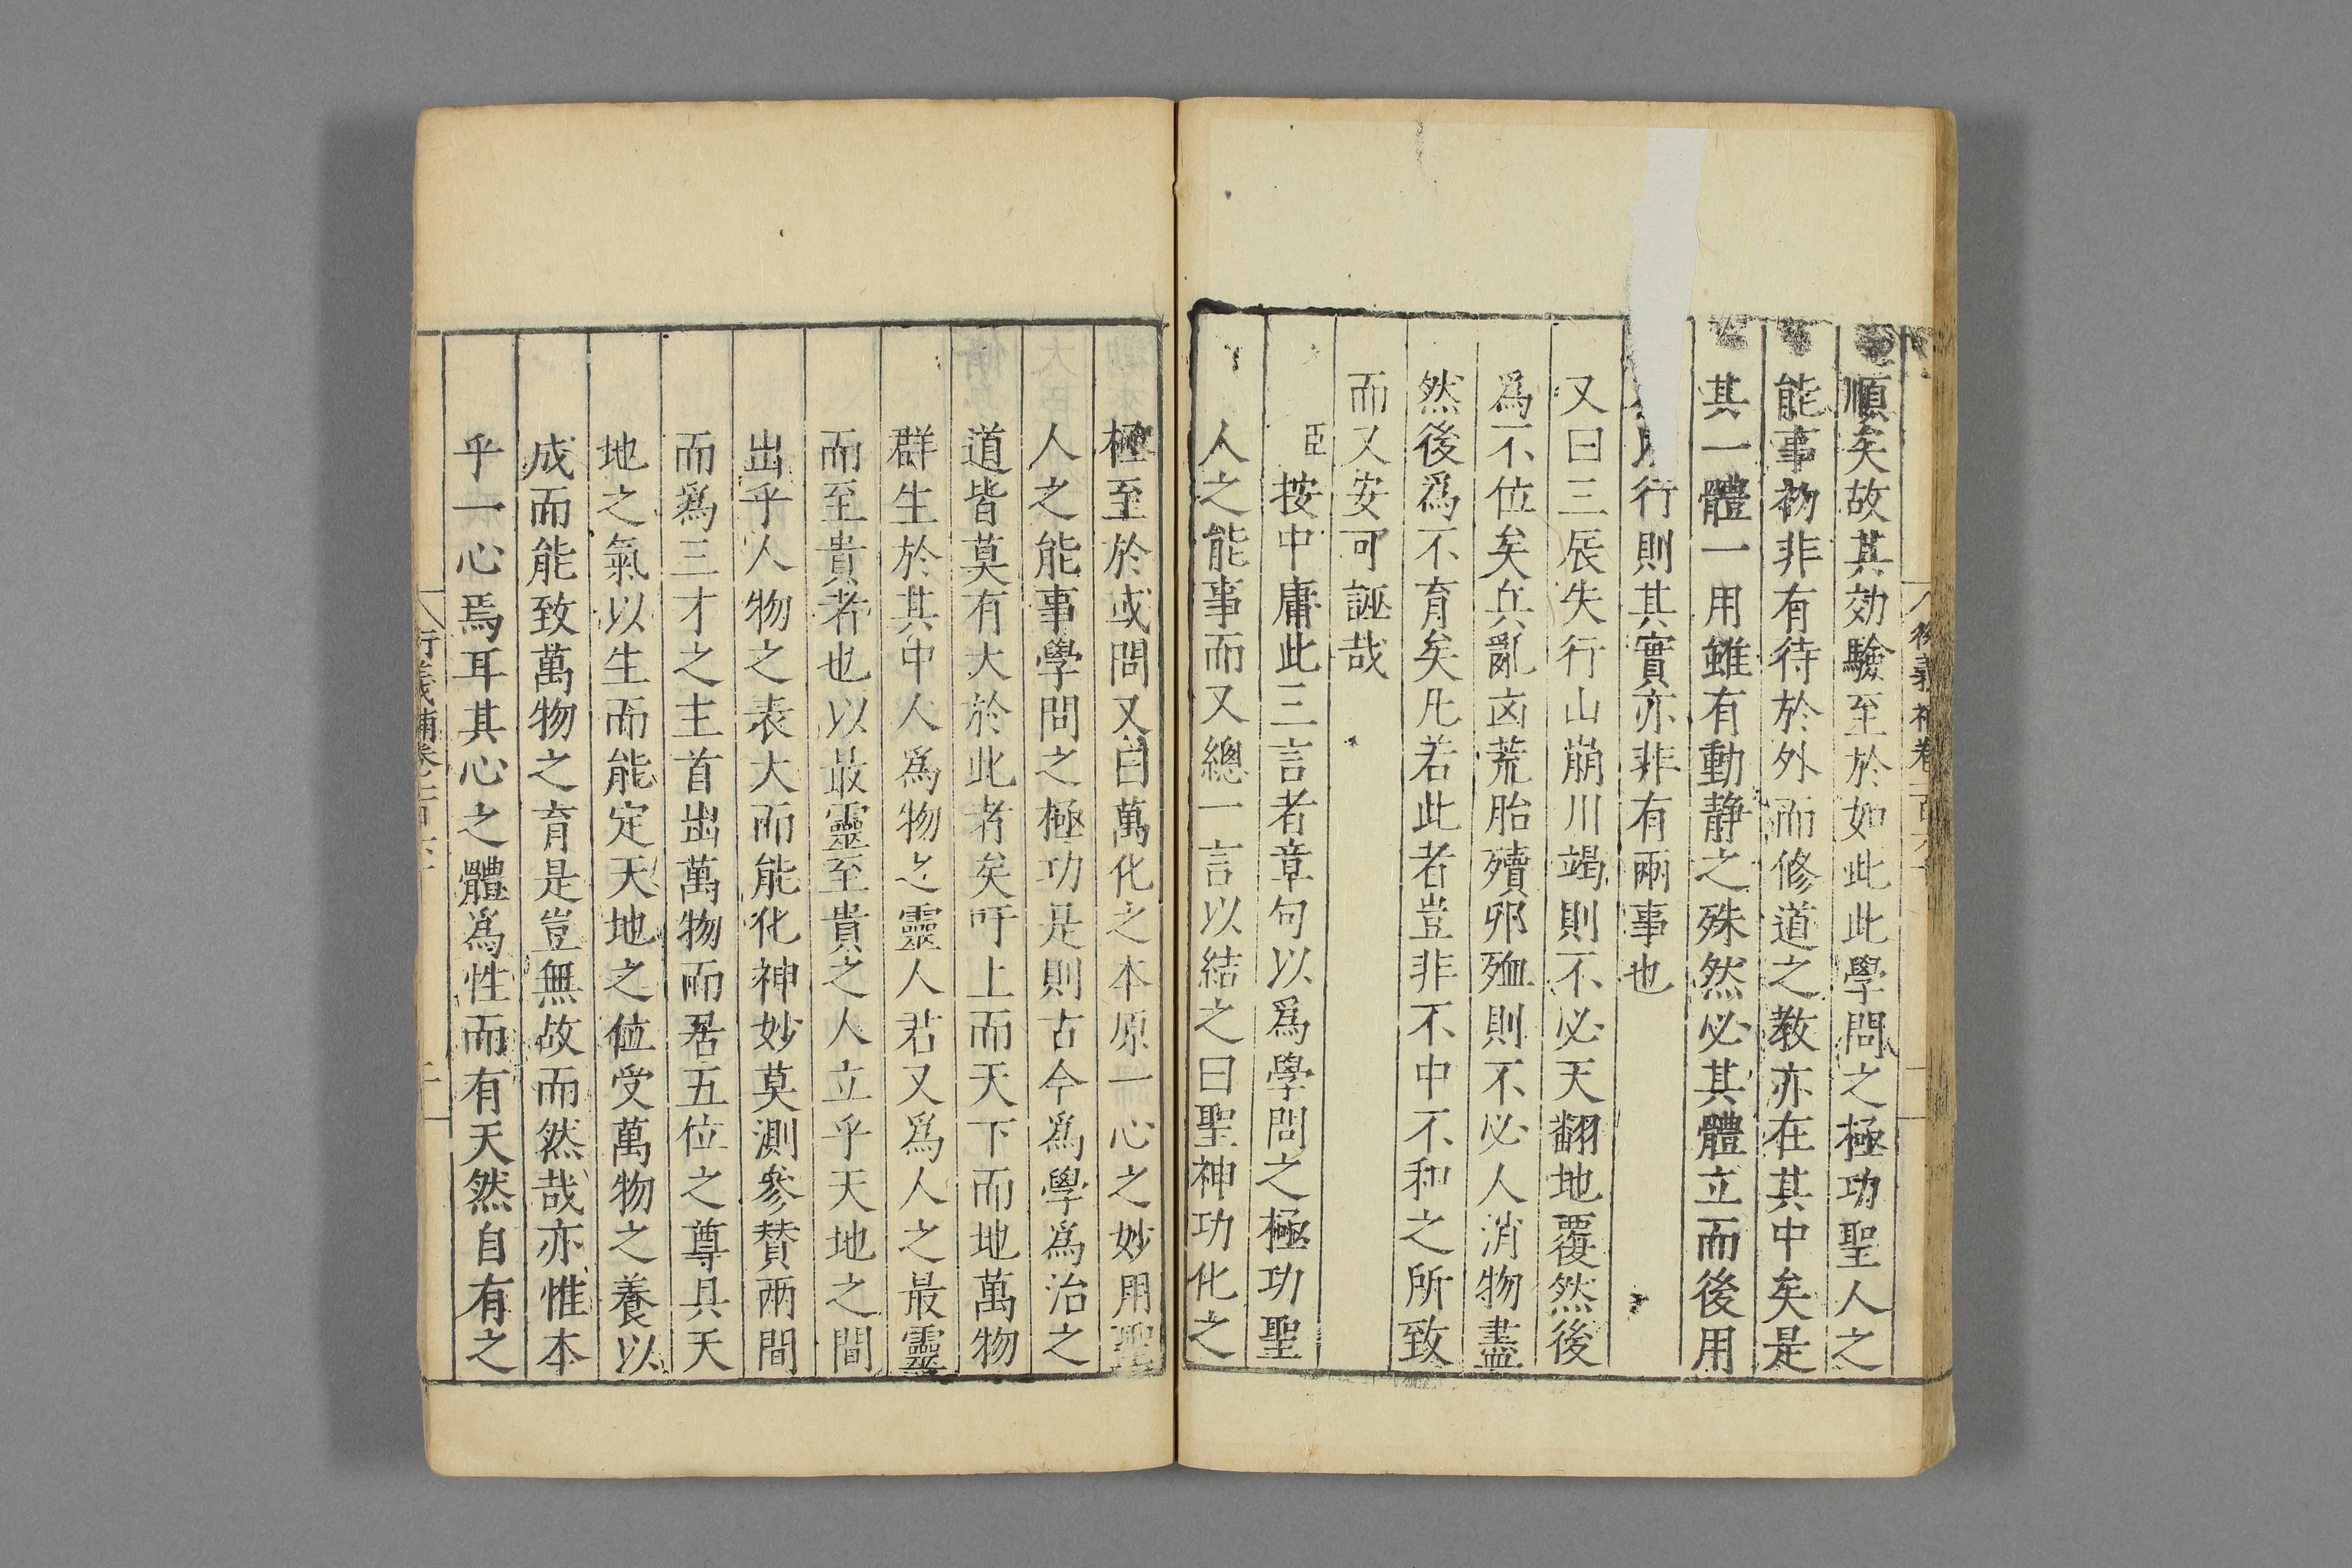 順矣故其効驗至於如此此學問之極功聖人之
能事初非有待於外而修道之教亦在其中矣是
其一體一用雖有動静之殊然必其體立而後用
行則其實亦非有兩事也
又曰三辰失行山崩川竭則不必天翻地覆然後
爲不位矣兵亂凶荒胎殰卵殈則不必人消物盡
然後爲不育矣凡若此者豈非不中不和之所致
而又安可誣哉
臣按中庸此三言者章句以爲學問之極功聖
人之能事而又總一言以結之曰聖神功化之
極至於或問又曰萬化之本原一心之妙用聖
人之能事學問之極功是則古今爲學爲治之
道皆莫有大於此者矣吁上而天下而地萬物
群生於其中人爲物之靈人君又爲人之最靈
而至貴者也以最靈至貴之人立乎天地之間
出乎人物之表大而能化神妙莫測參賛兩間
而爲三才之主首出萬物而居五位之尊具天
地之氣以生而能定天地之位受萬物之養以
成而能致萬物之育是豈無故而然哉亦惟本
乎一心焉耳其心之體爲性而有天然自有之
衍義補卷